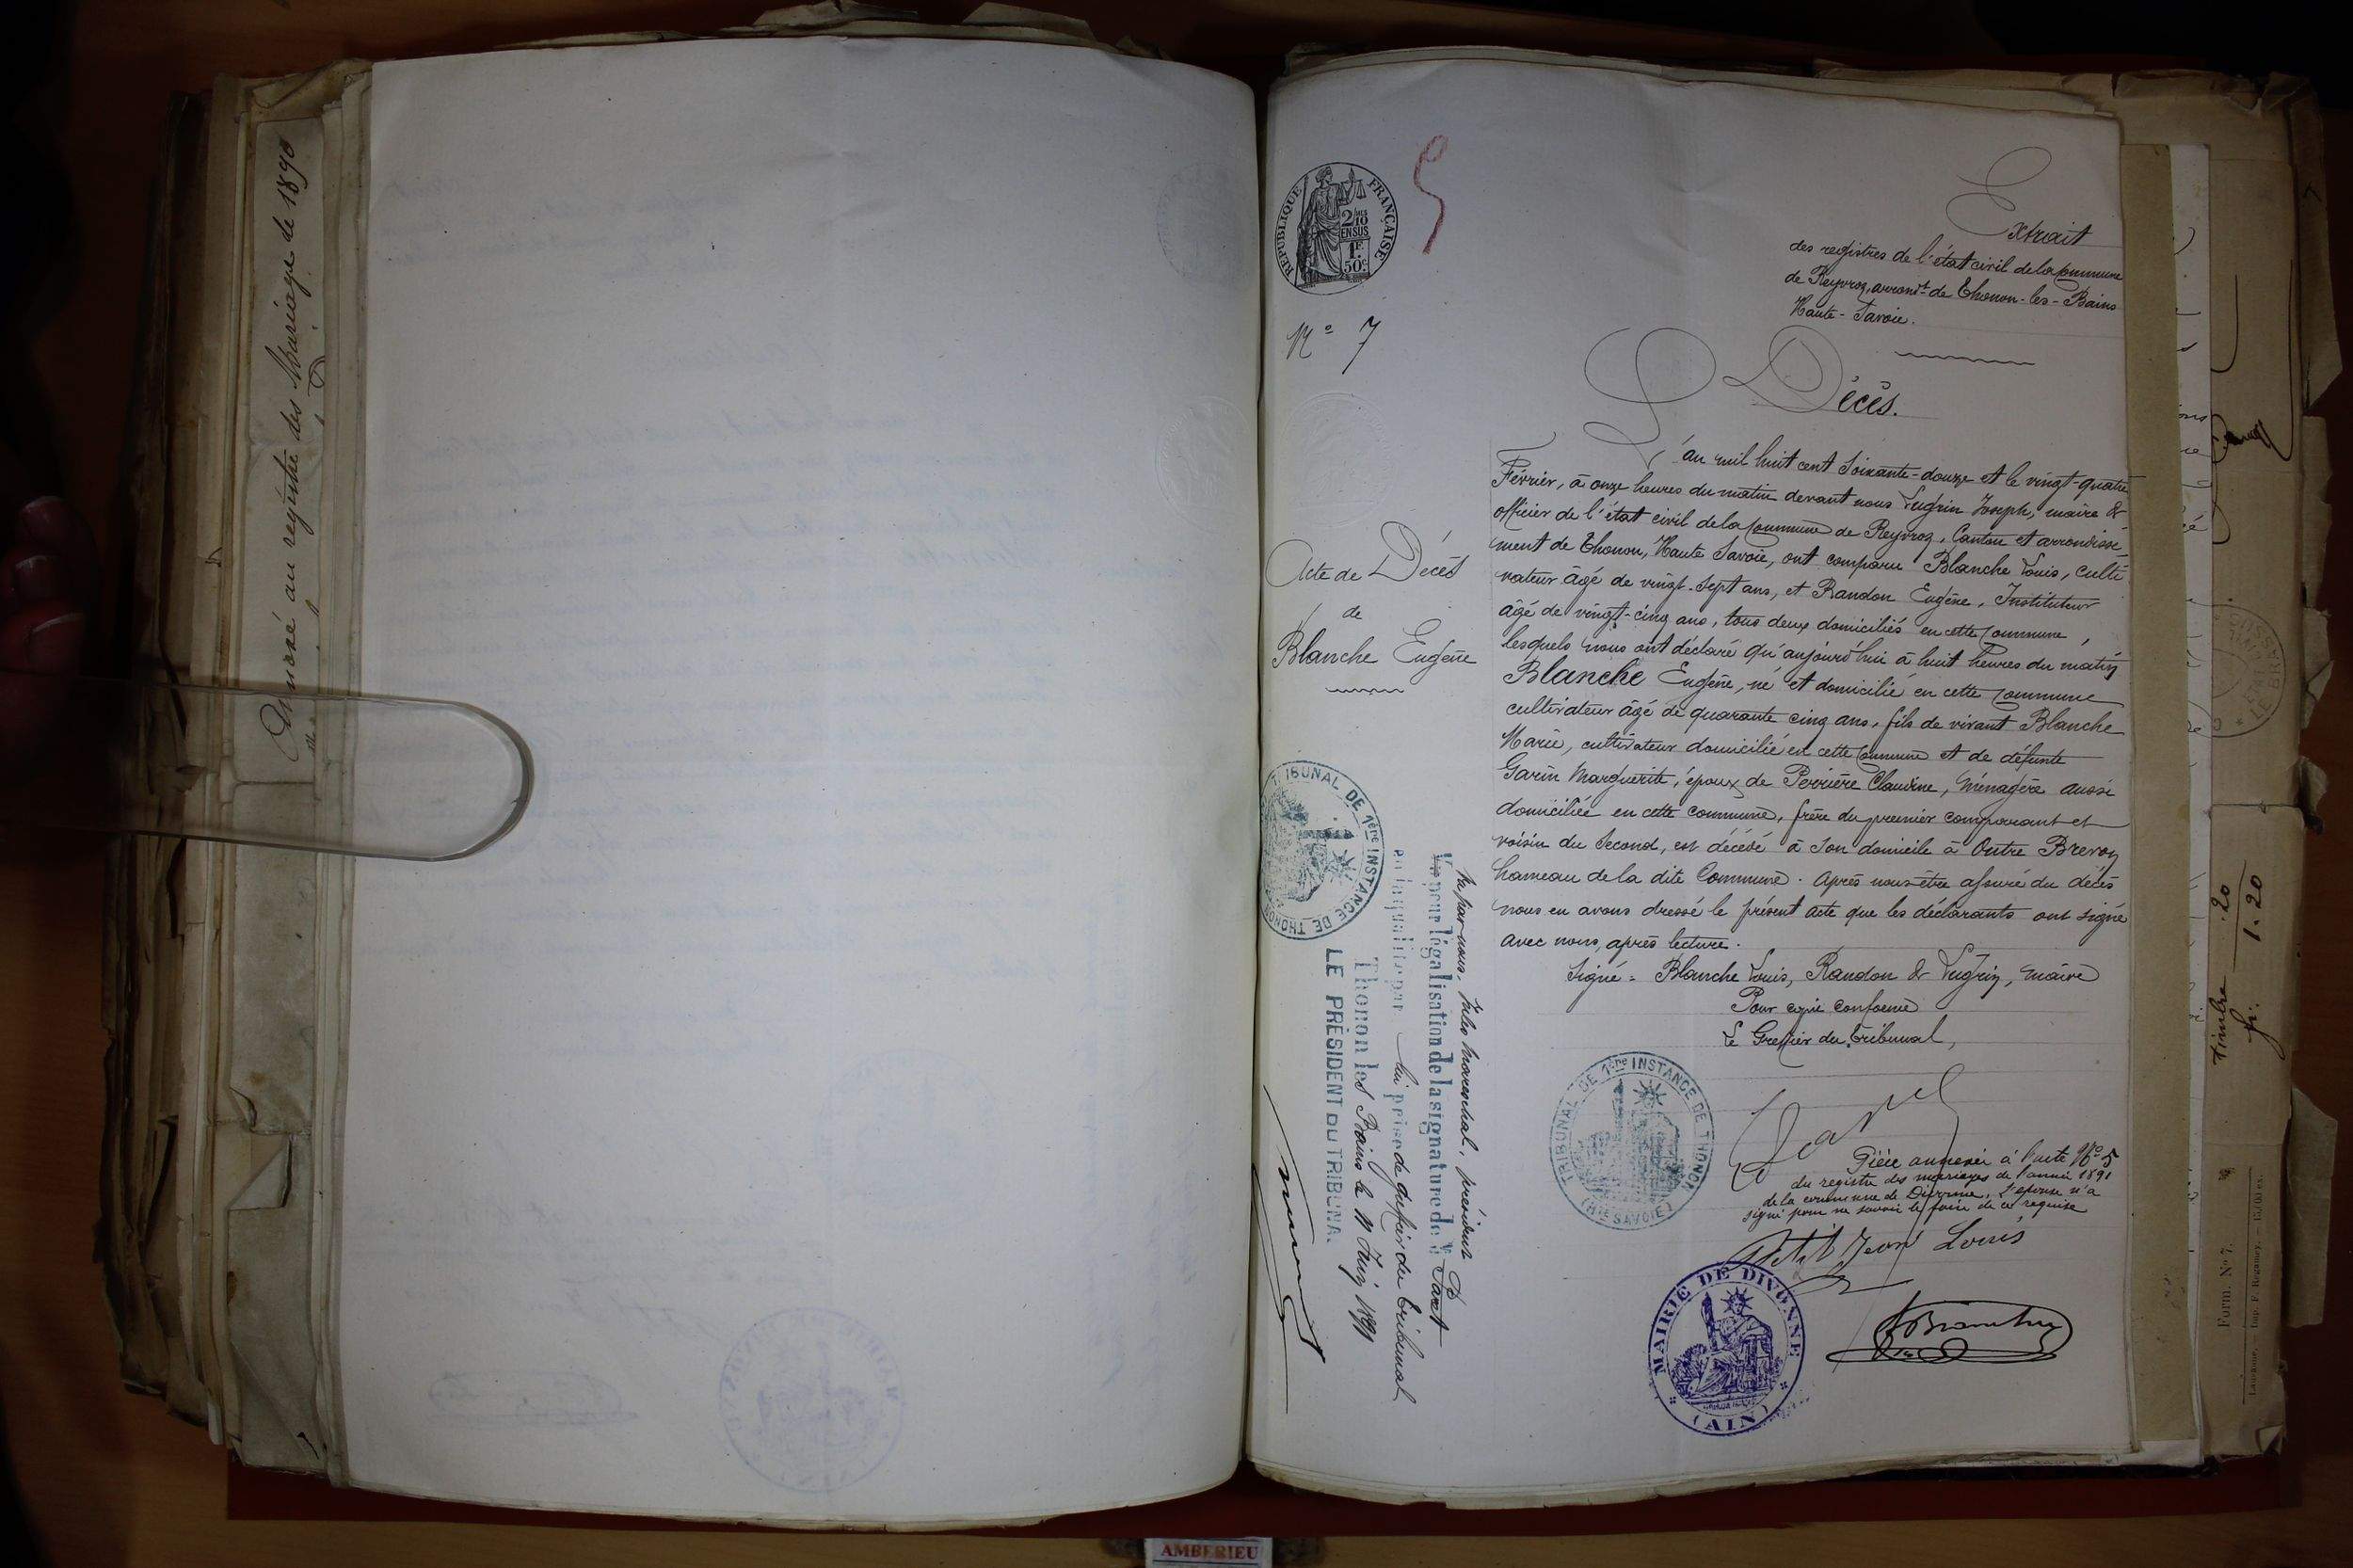 Annexé au registre des Mariage de 1890
RÉPUBLIQUE FRANÇAISE
2/10
EN SUS
1F.
50c.
5
No 7
Extrait
des registres de l'état civil de la Commune
de Reyvroz, arrondt de Thonon-les-Bains
Haute-Savoie.
Décès.
Acte de Décès
de
Blanche Eugène
L'an mil huit cent soixante-douze et le vingt-quatre
Février, à onze heures du matin devant nous Lugrin Joseph, maire &
officier de l'état civil de la Commune de Reyvroz, Canton et arrondisse-
ment de Thonon, Haute Savoie, ont comparu Blanche Louis, culti-
vateur âgé de vingt-sept ans, et Randon Eugène, Instituteur
âgé de vingt-cinq ans, tous deux domiciliés en cette Commune,
lesquels nous ont déclaré qu'aujourd'hui à huit heures du matin
Blanche Eugène, né et domicilié en cette commune
cultivateur âgé de quarante cinq ans, fils de vivant Blanche
Marie, cultivateur domicilié en cette Commune et de défunte
Garin Marguerite, époux de Perrière Claudine, Ménagère aussi
domiciliée en cette commune, frère du premier comparant et
voisin du Second, est décédé à son domicile à Outre Brevon
hameau de la dite Commune. Après nous être assuré du décès
nous en avons dressé le présent acte que les déclarants ont signé
avec nous, après lecture.
Signé = Blanche Louis, Randon & Lugrin, maire
Pour copie conforme
Le Greffier du Tribunal,
TRIBUNAL DE 1ère INSTANCE DE THONON
(Hte SAVOIE)
TRIBUNAL DE 1ère INSTANCE DE THONON
Vu par nous, Jules Mareschal, président
Vu pour légalisation de la signature de M
en la qualité de greffier du Tribunal
Thonon les Bains le 11 Juin 1891
LE PRÉSIDENT DU TRIBUNAL
Pièce annexée à l'acte No 5
du registre des mariages de l'année 1891
de la commune de Divonne, L'épouse n'a
signé pour ne savoir le faire de ce requise
Petit Jean Louis
MAIRIE DE DIVONNE
(AIN)
timbre .20
fr. 1.20
Form. No 7.
AMBERIEU